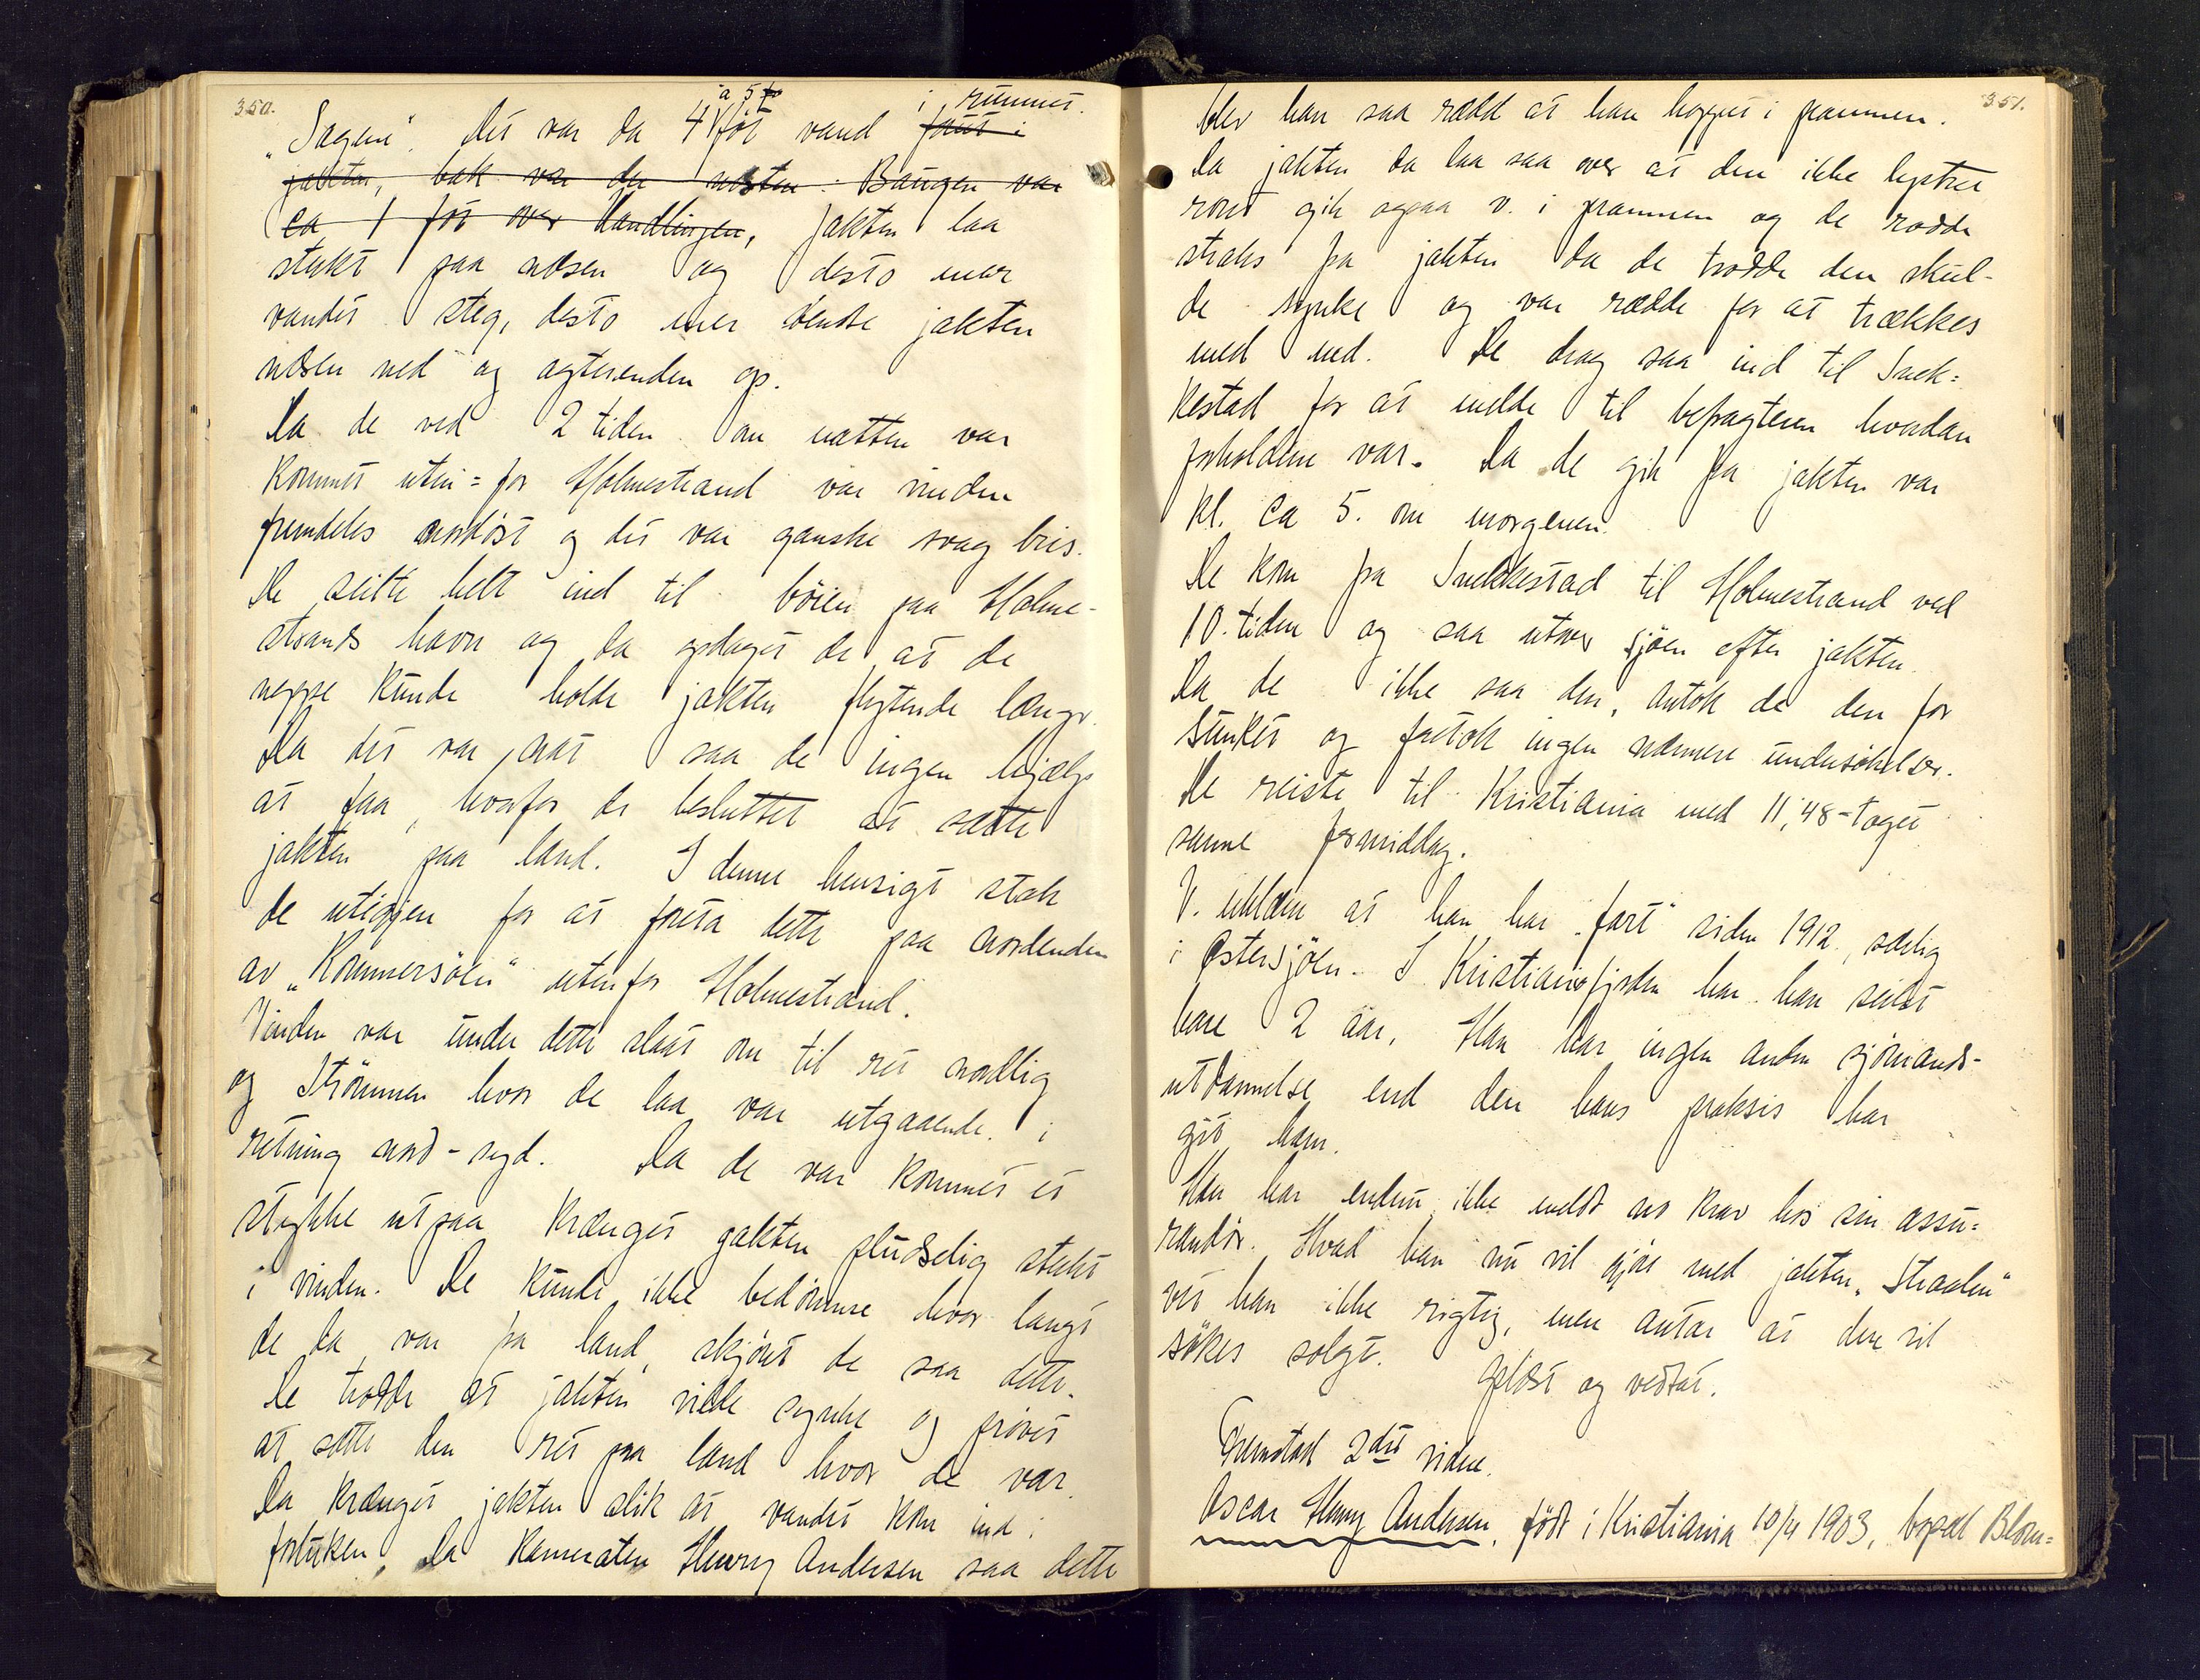 350.
"Sagene". Det var da 4 à 5 fot vand i rummet. ~~forut i~~
~~jakten, bak var der næsten. Baugen var~~
~~ca 1 fot over vandlinjen~~, jakten laa
stukt paa næsen og desto mer
vandet steg, desto mer dendte jakten
næsen ned og agterenden op.
Da de ved 2 tiden om natten var
kommet uten=for Holmestrand var vinden
fremdeles nordöst og det var ganske svag bris.
De seilte helt ind til böien paa Holme-
strands havn og da opdaget de at de
neppe kunde holde jakten flytende længer.
Da det var nat saa de ingen hjælp
at faa, hvorfor de besluttet at sætte
jakten paa land. I denne hensigt stak
de utigjen for at foreta dette paa nordenden
av "Kommersöen" utenfor Holmestrand.
Vinden var under dette slaat om til ret nordlig
og Strömmen hvor de laa var utgaaende i
retning nord-syd. Da de var kommet et
stykke utpaa krænget jakten pludselig sterkt
i vinden. De kunde ikke bedömme hvor langt
de da var fra land, skjönt de saa dette.
De trodde at jakten vilde synke og prövet
at sætte den ret paa land hvor de var.
Da krænget jakten slik at vandet kom ind i
forluken. Da Kameraten Henry Andersen saa dette
351.
blev han saa rædd at han hoppet i prammen.
Da jakten da laa saa over at den ikke lystret
roret gik ogsaa v. i prammen og de rodde
straks fra jakten da de trodde den skul-
de synke og var rædde for at trækkes
med ned. De drog saa ind til Snek=
kestad for at melde til befragteren hvordan
forholdene var. Da de gik fra jakten var
kl. ca 5. om morgenen.
De kom fra Snekkestad til Holmestrand ved
10. tiden og saa utover sjöen efter jakten.
Da de ikke saa den, antok de den for
sunket og foretok ingen nærmere undersökelser.
De reiste til Kristiania med 11,48-toget
samme formiddag.
V. uklærer at han har "fart" siden 1912, særlig
i Østersjöen. I Kristianiafjorden har han seilet
bare 2 aar. Han har ingen anden sjömands-
utdannelse end den hans praksis har
git ham.
Han har endnu ikke meldt no krav hos sin assu=
randör. Hvad han nu vil gjöre med jakten "Straalen"
vet han ikke rigtig, men antar at den vil
sökes solgt. Oplæst og vedtat.
Fremstod 2det vidne.
Oscar Henry Andersen, födt i Kristiania 10/4 1903, bopæl Blom=